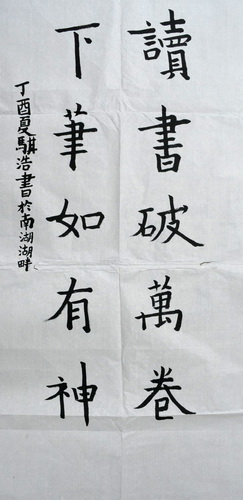 讀書破萬卷
下筆如有神
丁酉夏騏浩書於南湖湖畔